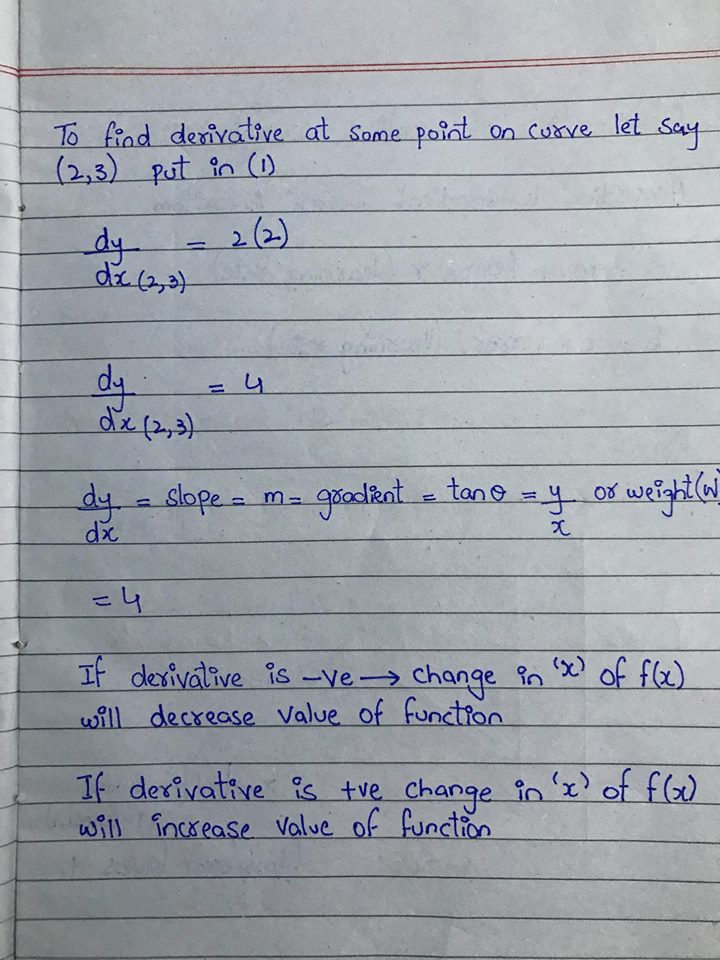 To find derivative at some point on curve let say
(2,3) put in (1)
dy/dx (2,3) = 2(2)
dy/dx (2,3) = 4
dy/dx = slope = m = gradient = tan θ = y/x or weight(W)
= 4
If derivative is -ve → change in 'x' of f(x)
will decrease value of function
If derivative is +ve change in 'x' of f(x)
will increase value of function